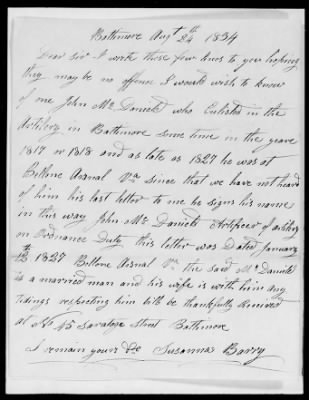 Baltimore Augt 24th 1834
Dear Sir I wrote these few lines to you hoping
they may be no offence I would wish to know
of one John Mc Daniels who Enlisted in the
Artilery in Baltimore some time in the years
1817 or 1818 and as late as 1827 he was at
Bellone Arsnal Va since that we have not heard
of him his last letter to me he signs his name
in this way John Mc Daniels Artificer of artilery
on Ordnance Duty this letter was Dated January
1827 Bellone Arsnal Va the said Mc Daniels
is a married man and his wife is with him any
tidings respecting him will be thankfully Received
at No 45 Saratoga Street Baltimore
I remain yours &c Susanna Barry